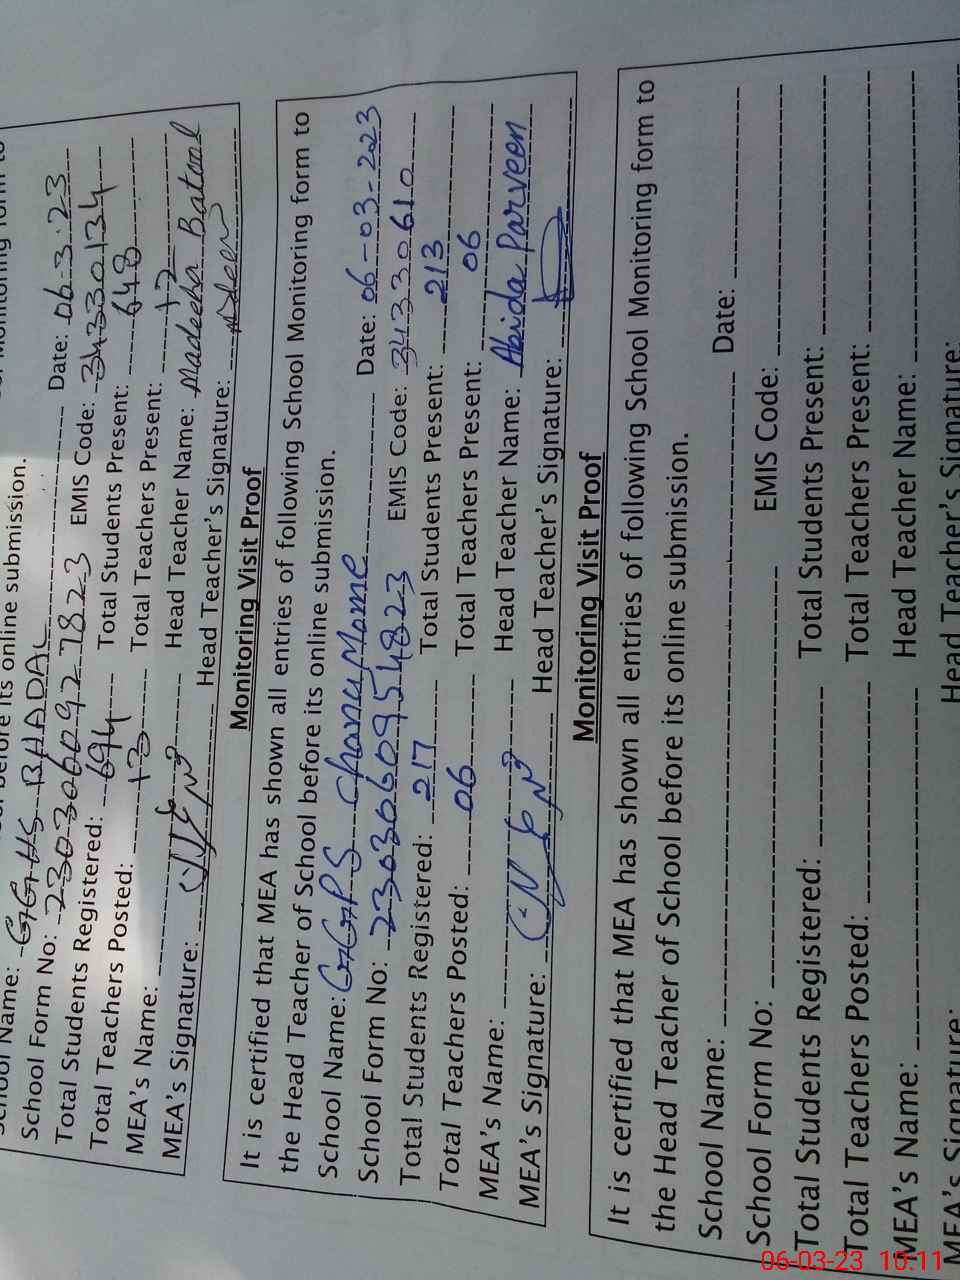 School Name: GGHS BHADAL Date: 06.3.23
School Form No: 2303066092 7823 EMIS Code: 34330134
Total Students Registered: 694 Total Students Present: 648
Total Teachers Posted: 13 Total Teachers Present: 12
MEA's Name: Head Teacher Name: Madeeha Batool
MEA's Signature: Head Teacher's Signature:
Monitoring Visit Proof
It is certified that MEA has shown all entries of following School Monitoring form to
the Head Teacher of School before its online submission.
School Name: GGPS Chanu Mome Date: 06-03-223
School Form No: 23030660954823 EMIS Code: 34330610
Total Students Registered: 217 Total Students Present: 213
Total Teachers Posted: 06 Total Teachers Present: 06
MEA's Name: Head Teacher Name: Abida Parveen
MEA's Signature: Head Teacher's Signature:
Monitoring Visit Proof
It is certified that MEA has shown all entries of following School Monitoring form to
the Head Teacher of School before its online submission.
School Name: Date:
School Form No: EMIS Code:
Total Students Registered: Total Students Present:
Total Teachers Posted: Total Teachers Present:
MEA's Name: Head Teacher Name:
MEA's Signature: Head Teacher's Signature:
06-03-23 10:11